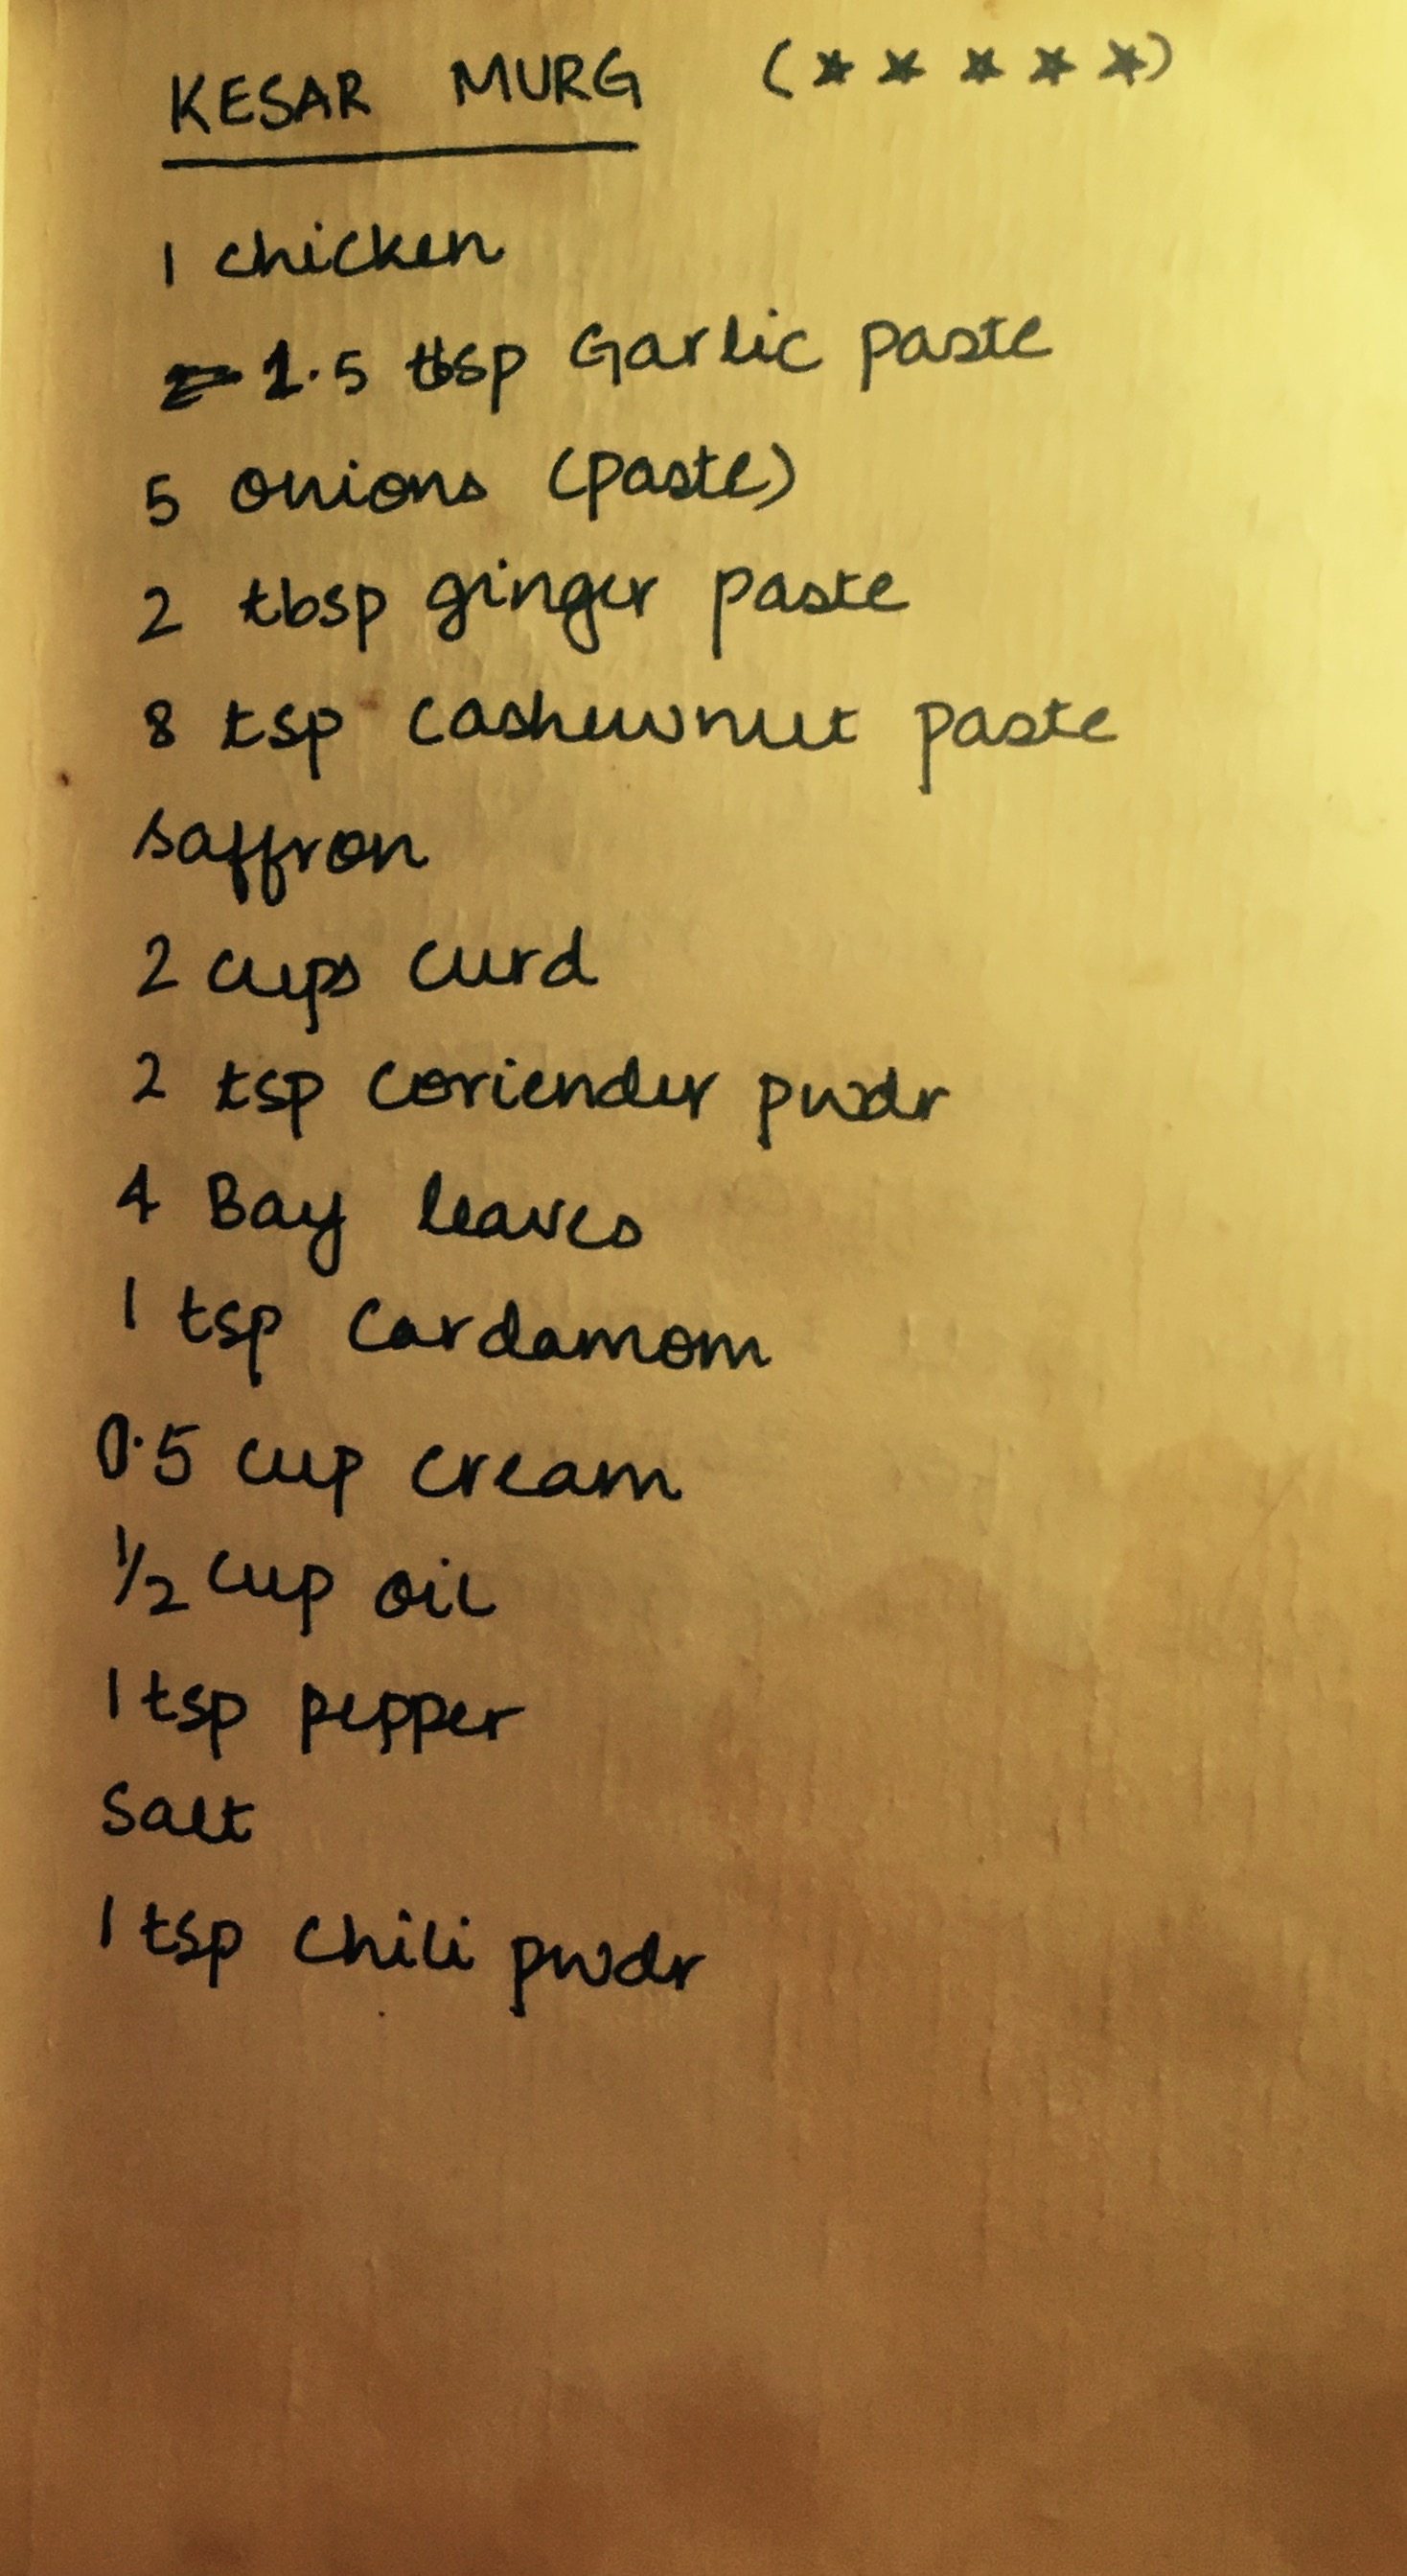 KESAR MURG (★ ★ ★ ★ ★)
1 chicken
1.5 tbsp Garlic paste
5 onions (paste)
2 tbsp ginger paste
8 tsp cashewnut paste
saffron
2 cups curd
2 tsp coriender pwdr
4 Bay leaves
1 tsp cardamom
0.5 cup cream
1/2 cup oil
1 tsp pepper
Salt
1 tsp chili pwdr